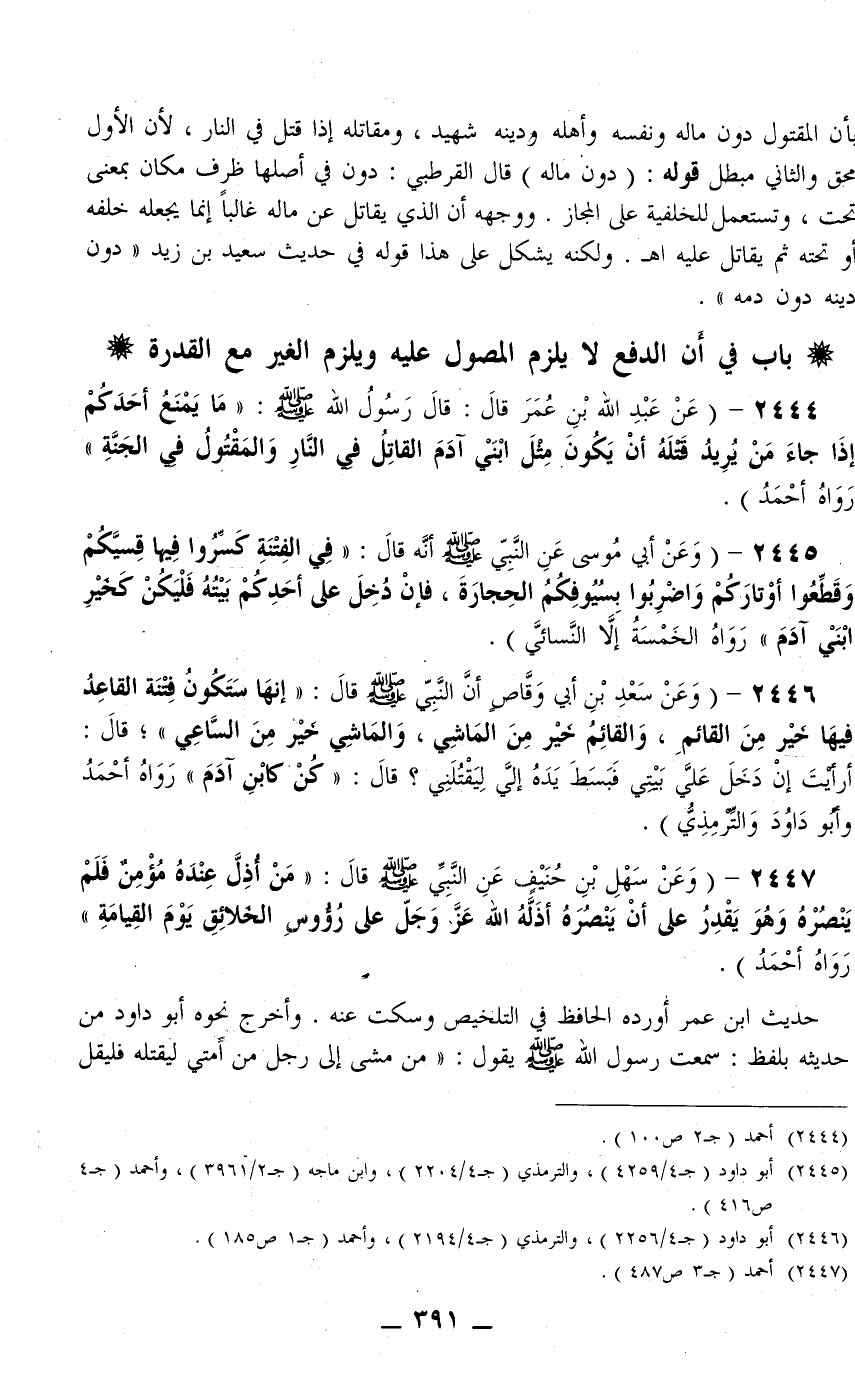 بأن المقتول دون ماله ونفسه وأهله ودينه شهيد ، ومقاتله إذا قتل في النار ، لأن الأول
محق والثاني مبطل قوله : ( دون ماله ) قال القرطبي : دون في أصلها ظرف مكان بمعنى
تحت ، وتستعمل للخلفية على المجاز . ووجهه أن الذي يقاتل عن ماله غالباً إنما يجعله خلفه
أو تحته ثم يقاتل عليه اهـ . ولكنه يشكل على هذا قوله في حديث سعيد بن زيد « دون
دينه دون دمه » .
❋ باب في أَن الدفع لا يلزم المصول عليه ويلزم الغير مع القدرة ❋
٢٤٤٤ – ( عَنْ عَبْدِ الله بْنِ عُمَرَ قالَ : قالَ رَسُولُ الله ﷺ : « مَا يَمْنَعُ أحَدَكُمْ
إذَا جاءَ مَنْ يُرِيدُ قَتْلَهُ أنْ يَكُونَ مِثْلَ ابْنَيْ آدَمَ القاتِلُ في النَّارِ وَالمَقْتُولُ في الجَنَّةِ »
رَوَاهُ أحْمَدُ ) .
٢٤٤٥ – ( وَعَنْ أبي مُوسى عَنِ النَّبِيِّ ﷺ أنَّه قالَ : « فِي الفِتْنَةِ كَسِّرُوا فِيها قِسِيَّكُمْ
وَقَطِّعُوا أوْتارَكُمْ وَاضْرِبُوا بِسُيُوفِكُمُ الحِجارَةَ ، فإنْ دُخِلَ على أحَدِكُمْ بَيْتُهُ فَلْيَكُنْ كَخَيْرِ
ابْنَيْ آدَمَ » رَوَاهُ الخَمْسَةُ إلَّا النَّسائيَّ ) .
٢٤٤٦ – ( وَعَنْ سَعْدِ بْنِ أبي وَقَّاصٍ أنَّ النَّبِيَّ ﷺ قالَ : « إنهَا سَتَكُونُ فِتْنَة القاعِدُ
فيهَا خَيْر مِنَ القائم ، وَالقائِمُ خَيْر مِنَ المَاشِي ، وَالماشِي خَيْر مِنَ السَّاعِي » ؛ قالَ :
أرأيْتَ إنْ دَخَلَ عَلَيَّ بَيْتِي فَبَسَطَ يَدَهُ إليَّ لِيَقْتُلَنِي ؟ قالَ : « كُنْ كابْنِ آدَمَ » رَوَاهُ أحْمَدُ
وأبُو دَاوُدَ وَالتِّرْمِذِيُّ ) .
٢٤٤٧ – ( وَعَنْ سَهْلِ بْنِ حُنَيْفٍ عَنِ النَّبِيِّ ﷺ قالَ : « مَنْ أُذِلَّ عِنْدَهُ مُؤْمِنٌ فَلَمْ
يَنْصُرْهُ وَهُوَ يَقْدِرُ على أنْ يَنْصُرَهُ أذَلَّهُ الله عَزَّ وَجَلّ على رُؤُوسِ الخَلائِقِ يَوْمَ القِيامَةِ »
رَوَاهُ أحْمَدُ ) .
حديث ابن عمر أورده الحافظ في التلخيص وسكت عنه . وأخرج نحوه أبو داود من
حديثه بلفظ : سمعت رسول الله ﷺ يقول : « من مشى إلى رجل من أمتي ليقتله فليقل
(٢٤٤٤) أحمد ( جـ٢ ص١٠٠ ) .
(٢٤٤٥) أبو داود ( جـ٤/٤٢٥٩ ) ، والترمذي ( جـ٤/٢٢٠٤ ) ، وابن ماجه ( جـ٢/٣٩٦١ ) ، وأحمد ( جـ٤
ص٤١٦ ) .
(٢٤٤٦) أبو داود ( جـ٤/٢٢٥٦ ) ، والترمذي ( جـ٤/٢١٩٤ ) ، وأحمد ( جـ١ ص١٨٥ ) .
(٢٤٤٧) أحمد ( جـ٣ ص٤٨٧ ) .
ــ ٣٩١ ــ